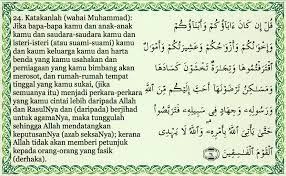 24. Katakanlah (wahai Muhammad):
Jika bapa-bapa kamu dan anak-anak
kamu dan saudara-saudara kamu dan
isteri-isteri (atau suami-suami) kamu
dan kaum keluarga kamu dan harta
benda yang kamu usahakan dan
perniagaan yang kamu bimbang akan
merosot, dan rumah-rumah tempat
tinggal yang kamu sukai, (jika
semuanya itu) menjadi perkara-perkara
yang kamu cintai lebih daripada Allah
dan RasulNya dan (daripada) berjihad
untuk agamaNya, maka tunggulah
sehingga Allah mendatangkan
keputusanNya (azab seksaNya); kerana
Allah tidak akan memberi petunjuk
kepada orang-orang yang fasik
(derhaka).
قُلْ إِن كَانَ ءَابَآؤُكُمْ وَأَبْنَآؤُكُمْ
وَإِخْوَٰنُكُمْ وَأَزْوَٰجُكُمْ وَعَشِيرَتُكُمْ وَأَمْوَٰلٌ
ٱقْتَرَفْتُمُوهَا وَتِجَٰرَةٌ تَخْشَوْنَ كَسَادَهَا
وَمَسَٰكِنُ تَرْضَوْنَهَآ أَحَبَّ إِلَيْكُم مِّنَ ٱللَّهِ
وَرَسُولِهِۦ وَجِهَادٍ فِى سَبِيلِهِۦ فَتَرَبَّصُوا۟
حَتَّىٰ يَأْتِىَ ٱللَّهُ بِأَمْرِهِۦ وَٱللَّهُ لَا يَهْدِى
ٱلْقَوْمَ ٱلْفَٰسِقِينَ